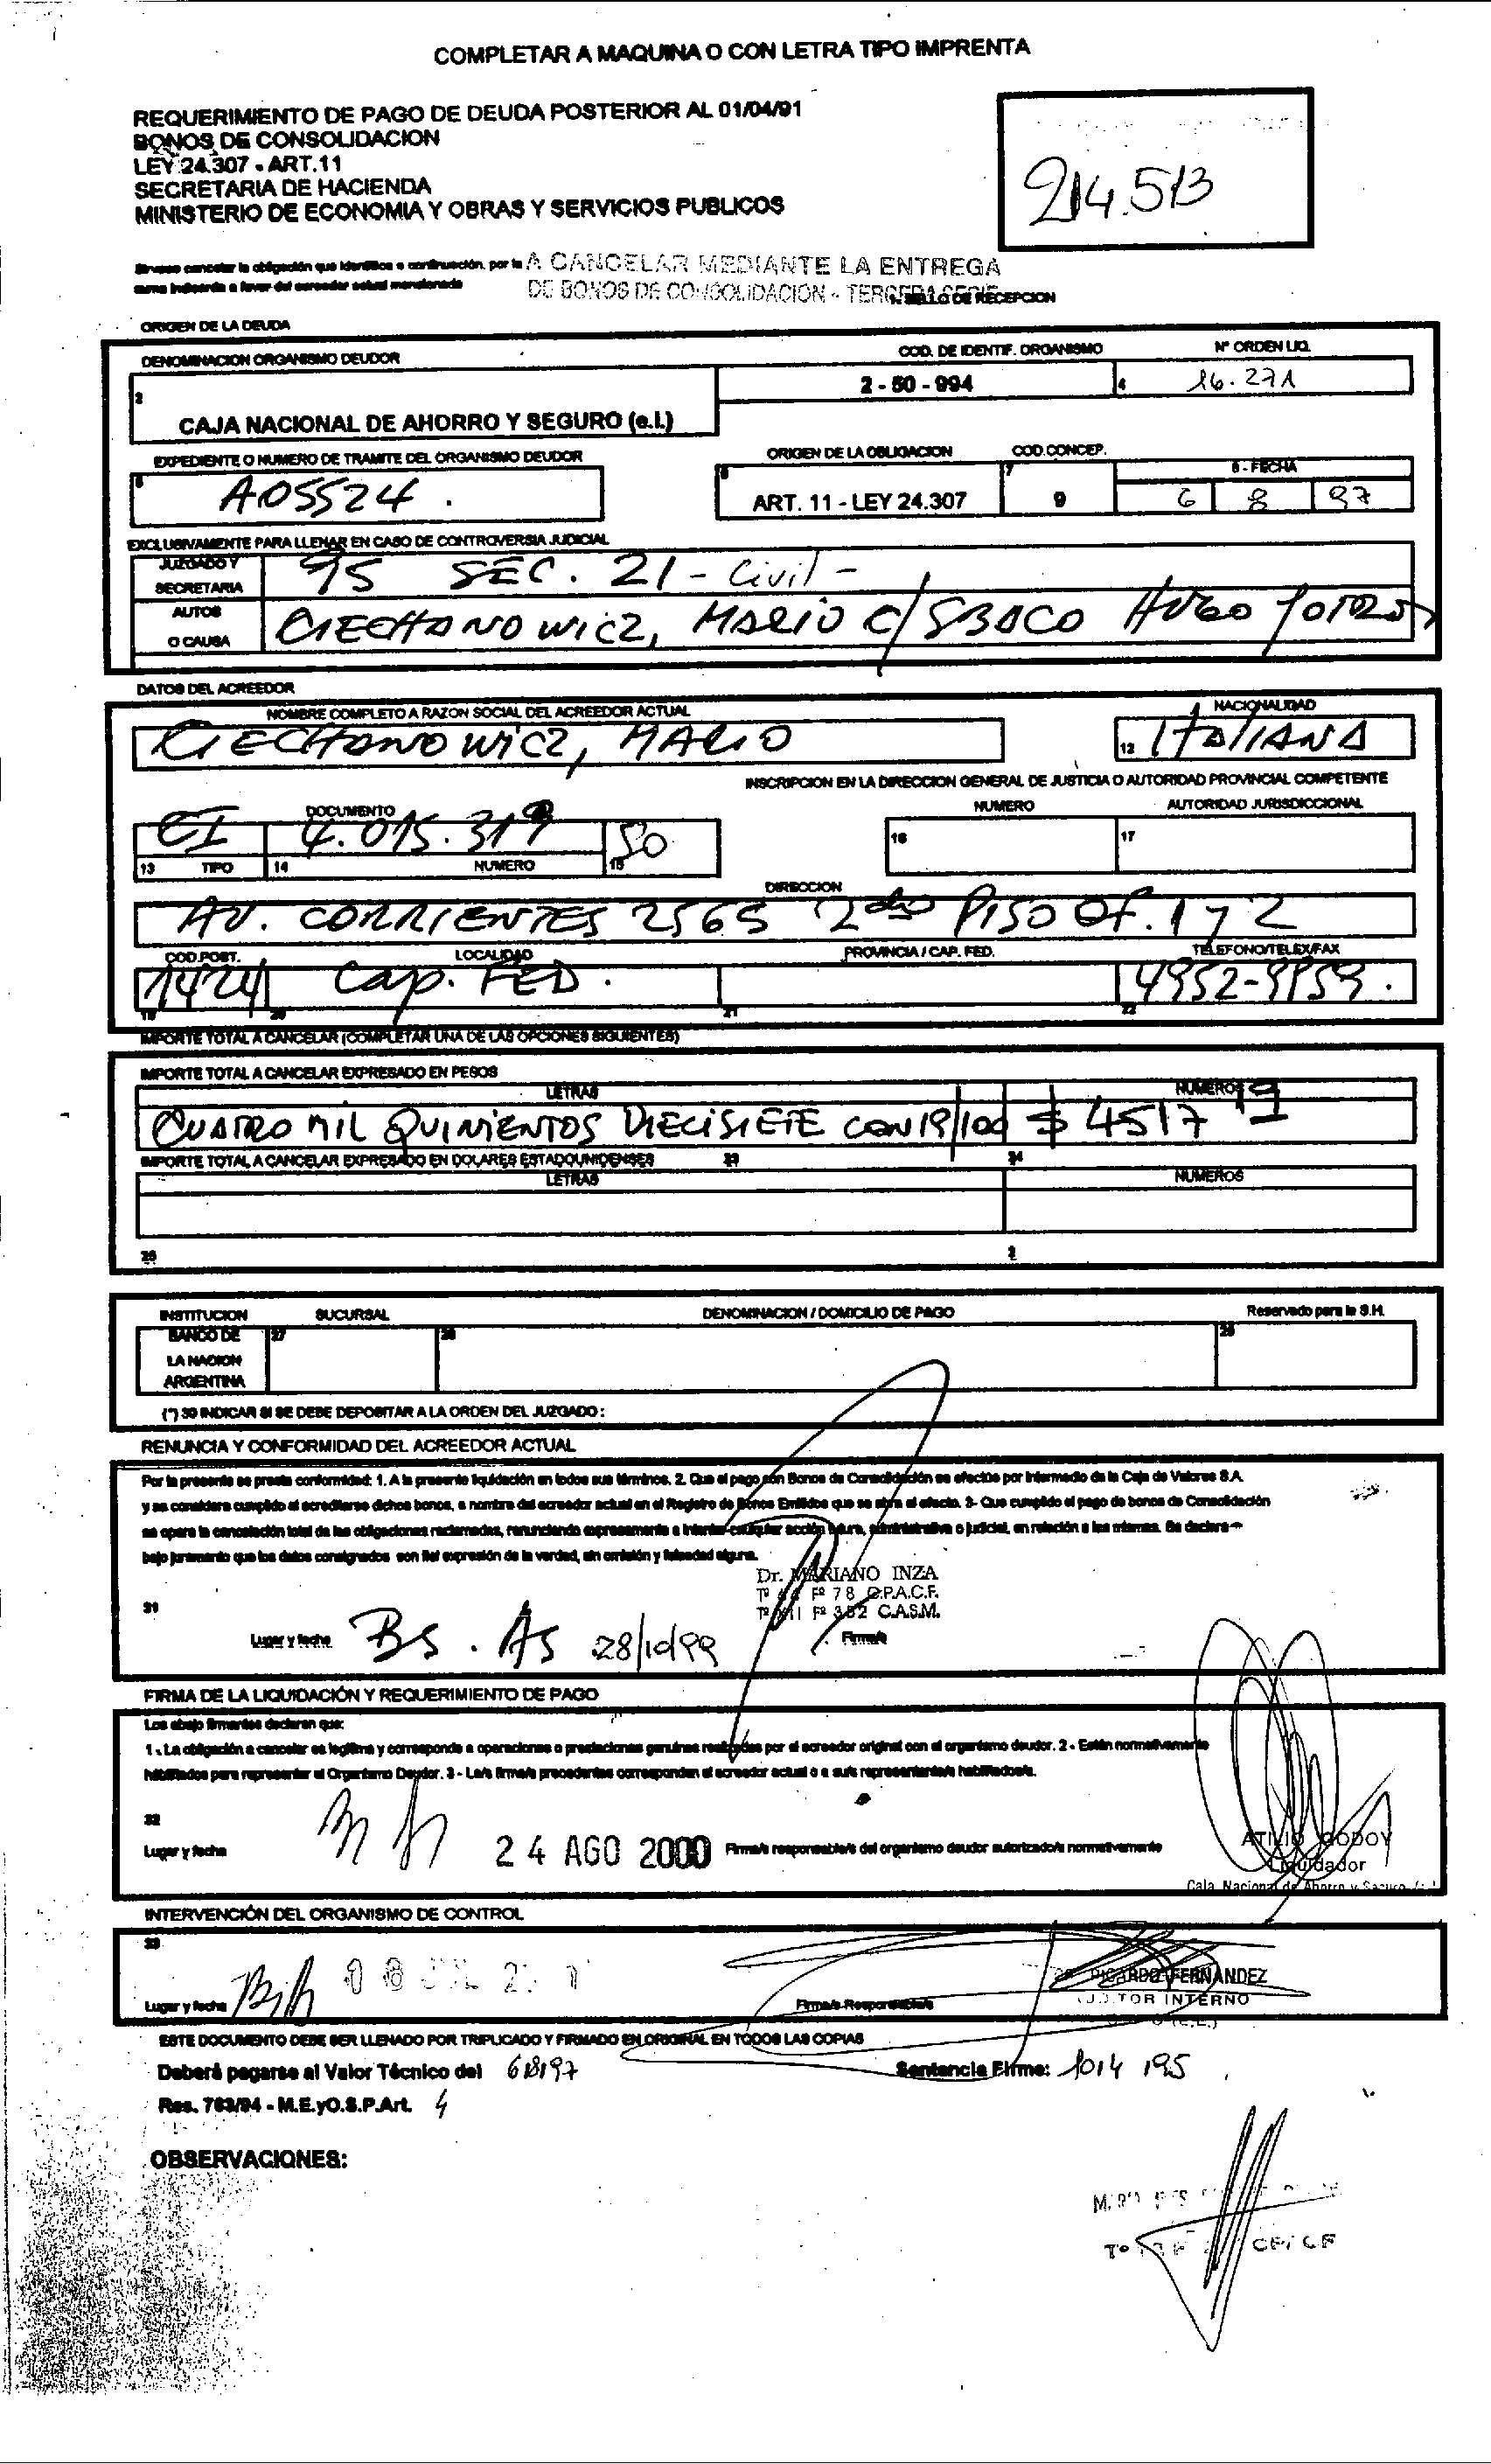 COMPLETAR A MAQUINA O CON LETRA TIPO IMPRENTA
REQUERIMIENTO DE PAGO DE DEUDA POSTERIOR AL 01/04/91
BONOS DE CONSOLIDACION
LEY 24.307 - ART.11
SECRETARIA DE HACIENDA
MINISTERIO DE ECONOMIA Y OBRAS Y SERVICIOS PUBLICOS
214.513
Sirvase cancelar la obligación que identifica a continuación, por la
suma indicada a favor del acreedor actual mencionado
A CANCELAR MEDIANTE LA ENTREGA
DE BONOS DE CONSOLIDACION - TERCERA SERIE
SELLO DE RECEPCION
ORIGEN DE LA DEUDA
DENOMINACION ORGANISMO DEUDOR
COD. DE IDENTIF. ORGANISMO
Nº ORDEN LIQ.
2
2 - 50 - 994
4 16.271
CAJA NACIONAL DE AHORRO Y SEGURO (e.l.)
EXPEDIENTE O NUMERO DE TRAMITE DEL ORGANISMO DEUDOR
ORIGEN DE LA OBLIGACION
COD.CONCEP.
8 - FECHA
A05524.
ART. 11 - LEY 24.307
7
9
6 8 97
EXCLUSIVAMENTE PARA LLENAR EN CASO DE CONTROVERSIA JUDICIAL
JUZGADO Y
SECRETARIA
95 SEC. 21 - Civil -
AUTOS
O CAUSA
CIECHANOWICZ, MARIO C/ SBACO HUGO
DATOS DEL ACREEDOR
NOMBRE COMPLETO A RAZON SOCIAL DEL ACREEDOR ACTUAL
NACIONALIDAD
CIECHANOWICZ, MARIO
12 ITALIANA
INSCRIPCION EN LA DIRECCION GENERAL DE JUSTICIA O AUTORIDAD PROVINCIAL COMPETENTE
DOCUMENTO
NUMERO
AUTORIDAD JURISDICCIONAL
CI 4.015.319 50
16
17
13 TIPO
14 NUMERO
15
DIRECCION
AV. CORRIENTES 2565 2do PISO OF. 1 y 2
COD.POST.
LOCALIDAD
PROVINCIA / CAP. FED.
TELEFONO/TELEX/FAX
1424 Cap. FED.
4952-9959.
19 20 21 22
IMPORTE TOTAL A CANCELAR (COMPLETAR UNA DE LAS OPCIONES SIGUIENTES)
IMPORTE TOTAL A CANCELAR EXPRESADO EN PESOS
LETRAS
NUMEROS
CUATRO MIL QUINIENTOS DIECISIETE CON 19/100 $ 4517 19
IMPORTE TOTAL A CANCELAR EXPRESADO EN DOLARES ESTADOUNIDENSES
23
24
LETRAS
NUMEROS
25
INSTITUCION
SUCURSAL
DENOMINACION / DOMICILIO DE PAGO
Reservado para la S.H.
BANCO DE
LA NACION
ARGENTINA
27
28
29
(*) 30 INDICAR SI SE DEBE DEPOSITAR A LA ORDEN DEL JUZGADO :
RENUNCIA Y CONFORMIDAD DEL ACREEDOR ACTUAL
Por la presente se presta conformidad: 1. A la presente liquidación en todos sus términos. 2. Que el pago con Bonos de Consolidación se efectúe por intermedio de la Caja de Valores S.A.
y se considera cumplido al acreditarse dichos bonos, a nombre del acreedor actual en el Registro de Bonos Emitidos que se abra al efecto. 3- Que cumplido el pago de bonos de Consolidación
se opera la cancelación total de las obligaciones reclamadas, renunciando expresamente a intentar cualquier acción futura, administrativa o judicial, en relación a las mismas. Se declara
bajo juramento que los datos consignados son fiel expresión de la verdad, sin omisión y falsedad alguna.
Dr. MARIANO INZA
Tº Fº 78 C.P.A.C.F.
Tº XII Fº 352 C.A.S.M.
31
Lugar y fecha Bs. As 28/10/99
Firma/s
FIRMA DE LA LIQUIDACIÓN Y REQUERIMIENTO DE PAGO
Los abajo firmantes declaran que:
1 - La obligación a cancelar es legítima y corresponde a operaciones o prestaciones genuinas realizadas por el acreedor original con el organismo deudor. 2 - Están normativamente
habilitados para representar al Organismo Deudor. 3 - La/s firma/s precedentes corresponden al acreedor actual o a su/s representante/s habilitado/s.
32
Lugar y fecha
24 AGO 2000
Firma/s responsable/s del organismo deudor autorizado/s normativamente
ATILIO GODOY
Liquidador
Caja Nacional de Ahorro y Seguro
INTERVENCIÓN DEL ORGANISMO DE CONTROL
33
Lugar y fecha
Firma/s Responsable/s
RICARDO FERNANDEZ
AUDITOR INTERNO
ESTE DOCUMENTO DEBE SER LLENADO POR TRIPLICADO Y FIRMADO EN ORIGINAL EN TODOS LAS COPIAS
Deberá pagarse al Valor Técnico del 6/8/97
Sentencia Firme: 10/4/95
Res. 763/94 - M.E.yO.S.P.Art. 4
OBSERVACIONES: